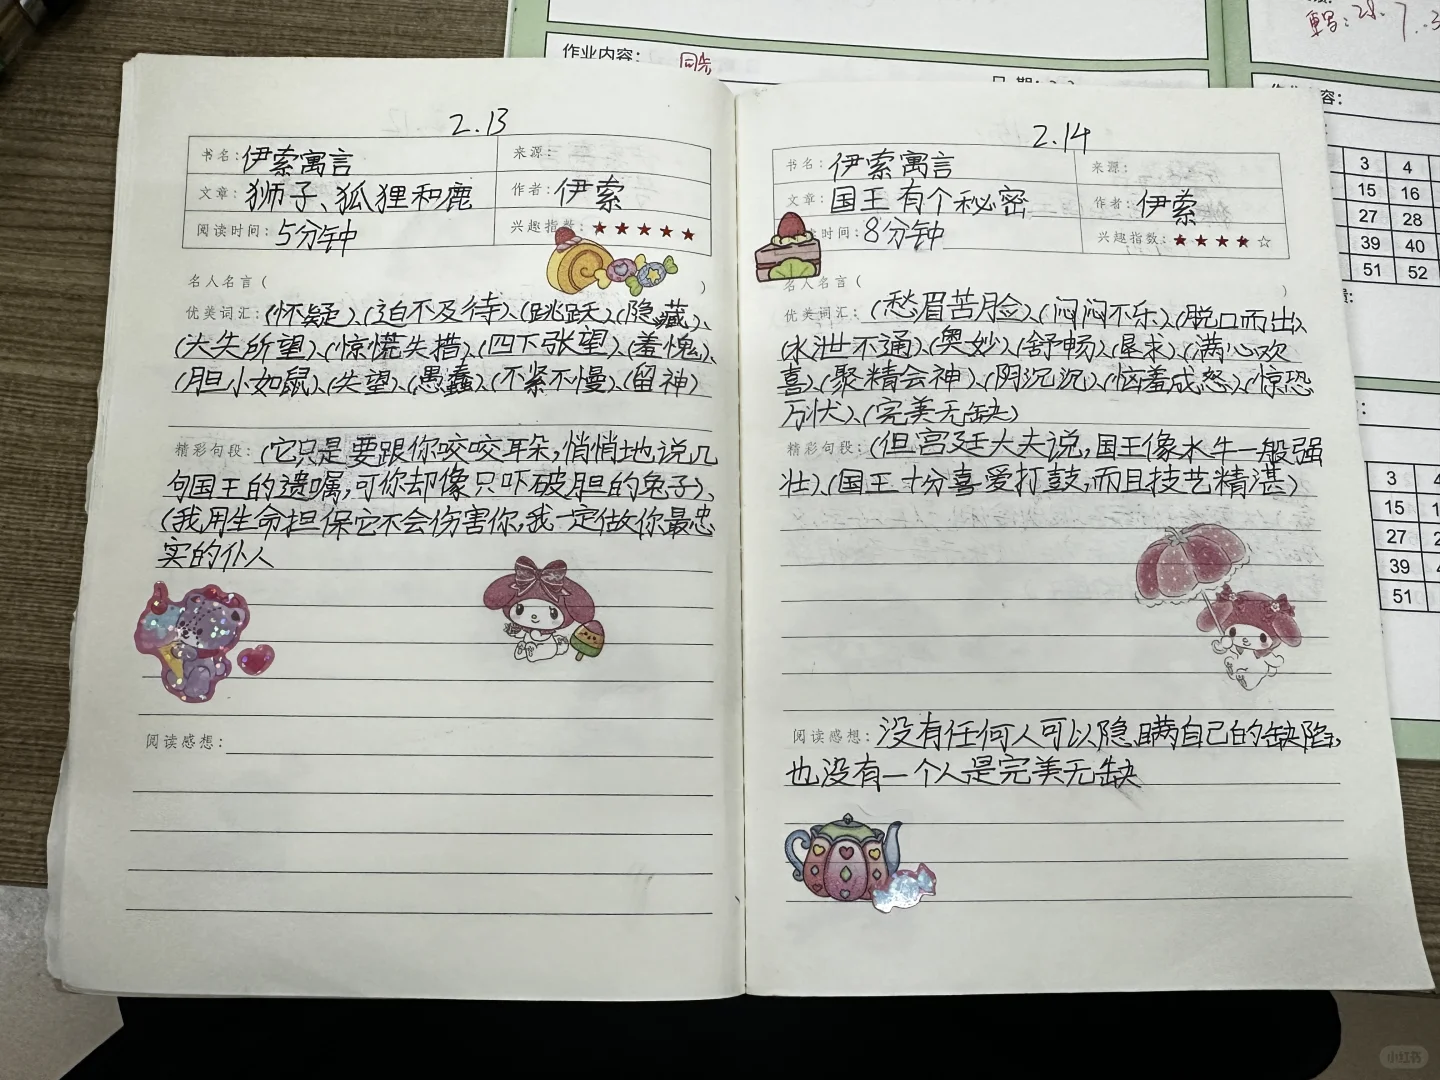 作业内容：
2.13
书名：伊索寓言 来源：
文章：狮子、狐狸和鹿 作者：伊索
阅读时间：5分钟 兴趣指数：★★★★★
名人名言（ ）
优美词汇：（怀疑）、（迫不及待）、（跳跃）、（隐藏）、
（大失所望）、（惊慌失措）、（四下张望）、（羞愧）、
（胆小如鼠）、（失望）、（愚蠢）、（不紧不慢）、（留神）
精彩句段：（它只是要跟你咬咬耳朵，悄悄地说几
句国王的遗嘱，可你却像只吓破胆的兔子）、
（我用生命担保它不会伤害你，我一定做你最忠
实的仆人
阅读感想：
2.14
书名：伊索寓言 来源：
文章：国王有个秘密 作者：伊索
时间：8分钟 兴趣指数：★★★★☆
名人名言（ ）
优美词汇：（愁眉苦脸）、（闷闷不乐）、（脱口而出）、
（水泄不通）、（奥妙）、（舒畅）、（恳求）、（满心欢
喜）、（聚精会神）、（阴沉沉）、（恼羞成怒）、（惊恐
万状）、（完美无缺）
精彩句段：（但宫廷大夫说，国王像水牛一般强
壮）、（国王十分喜爱打鼓，而且技艺精湛）
阅读感想：没有任何人可以隐瞒自己的缺陷，
也没有一个人是完美无缺
3 4
15 16
27 28
39 40
51 52
3 4
15
27
39
51
小红书